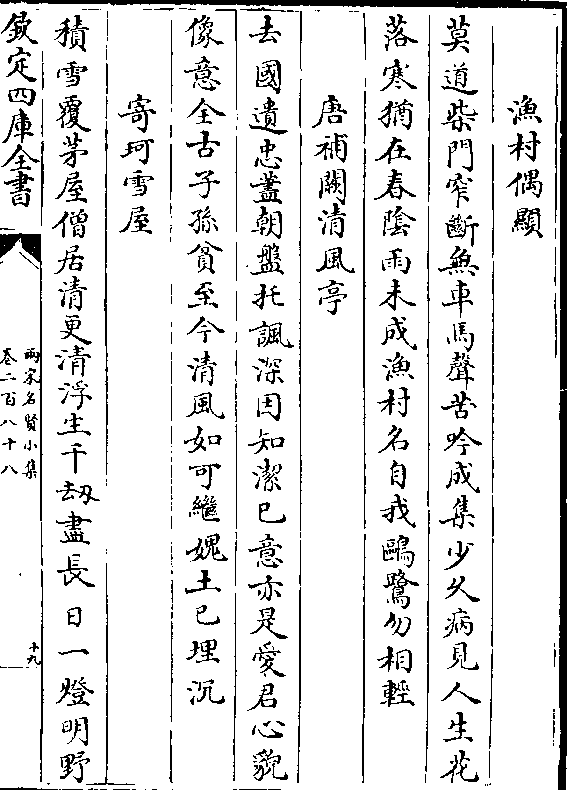 漁村偶顯
莫道柴門窄斷無車馬聲苦吟成集少久病見人生花
落寒猶在春陰雨未成漁村名自我鷗鷺勿相輕
唐補闕清風亭
去國遺忠藎朝盤托諷深因知潔已意亦是愛君心貌
像意全古子孫貧至今清風如可繼媿土已埋沉
寄珂雪屋
積雪覆茅屋僧居清更清浮生千刼盡長日一燈明野
欽定四庫全書
兩宋名賢小集
卷二百八十八
十九